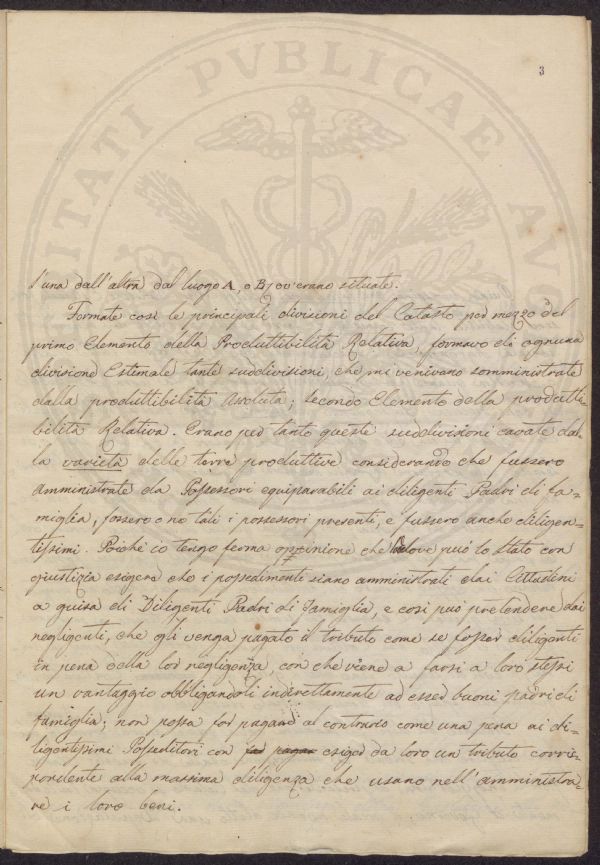 3
UTILITATI PVBLICAE AVG
l'una dall'altra dal luogo A, o B, ov'erano situate.
Formate così le principali divisioni del Catasto per mezzo del
primo Elemento della Produttibilità Relativa, formavo di ognuna
divisione Estimale tante suddivisioni, che mi venivano somministrate
dalla produttibilità Assoluta; secondo Elemento della produtti-
bilità Relativa. Erano per tanto queste suddivisioni cavate dal-
la varietà delle terre produttive considerando che fussero
amministrate da Possessori equiparabili ai diligenti Padri di fa-
miglia, fossero o no tali i possessori presenti, e fussero anche diligen-
tissimi. Poichè io tengo ferma oppinione che dove può lo Stato con
giustizia esigere che i possedimenti siano amministrati dai Cittadini
a guisa di Diligenti Padri di Famiglia, e così può pretendere dai
negligenti, che gli venga pagato il tributo come se fosser diligenti
in pena della lor negligenza, con che viene a farsi a loro stessi
un vantaggio obbligandoli indirettamente ad esser buoni padri di
famiglia; non possa far pagare al contrario come una pena ai di-
ligentissimi Posseditori con far pagar esiger da loro un tributo corris-
pondente alla massima diligenza che usano nell'amministra-
re i loro beni.